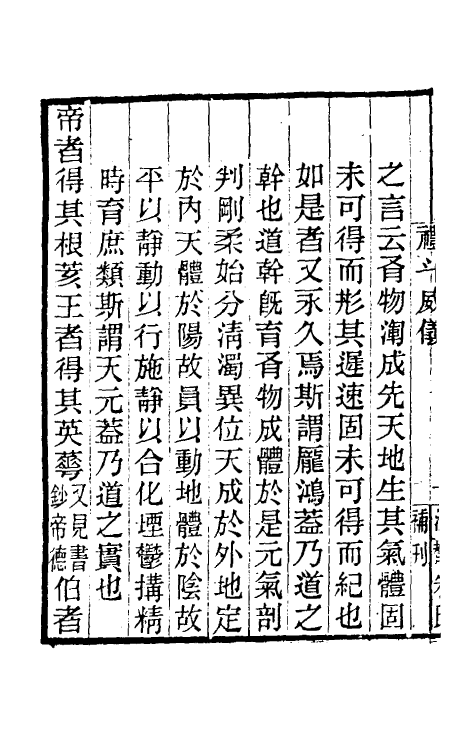 禮斗威儀
補刊
之言云有物渾成先天地生其氣體固
未可得而形其遲速固未可得而紀也
如是者又永久焉斯謂龐鴻葢乃道之
幹也道幹旣育有物成體於是元氣剖
判剛柔始分淸濁異位天成於外地定
於內天體於陽故員以動地體於陰故
平以靜動以行施靜以合化堙鬱搆精
時育庶類斯謂天元葢乃道之實也
帝者得其根荄王者得其英蕚又見書鈔帝德伯者